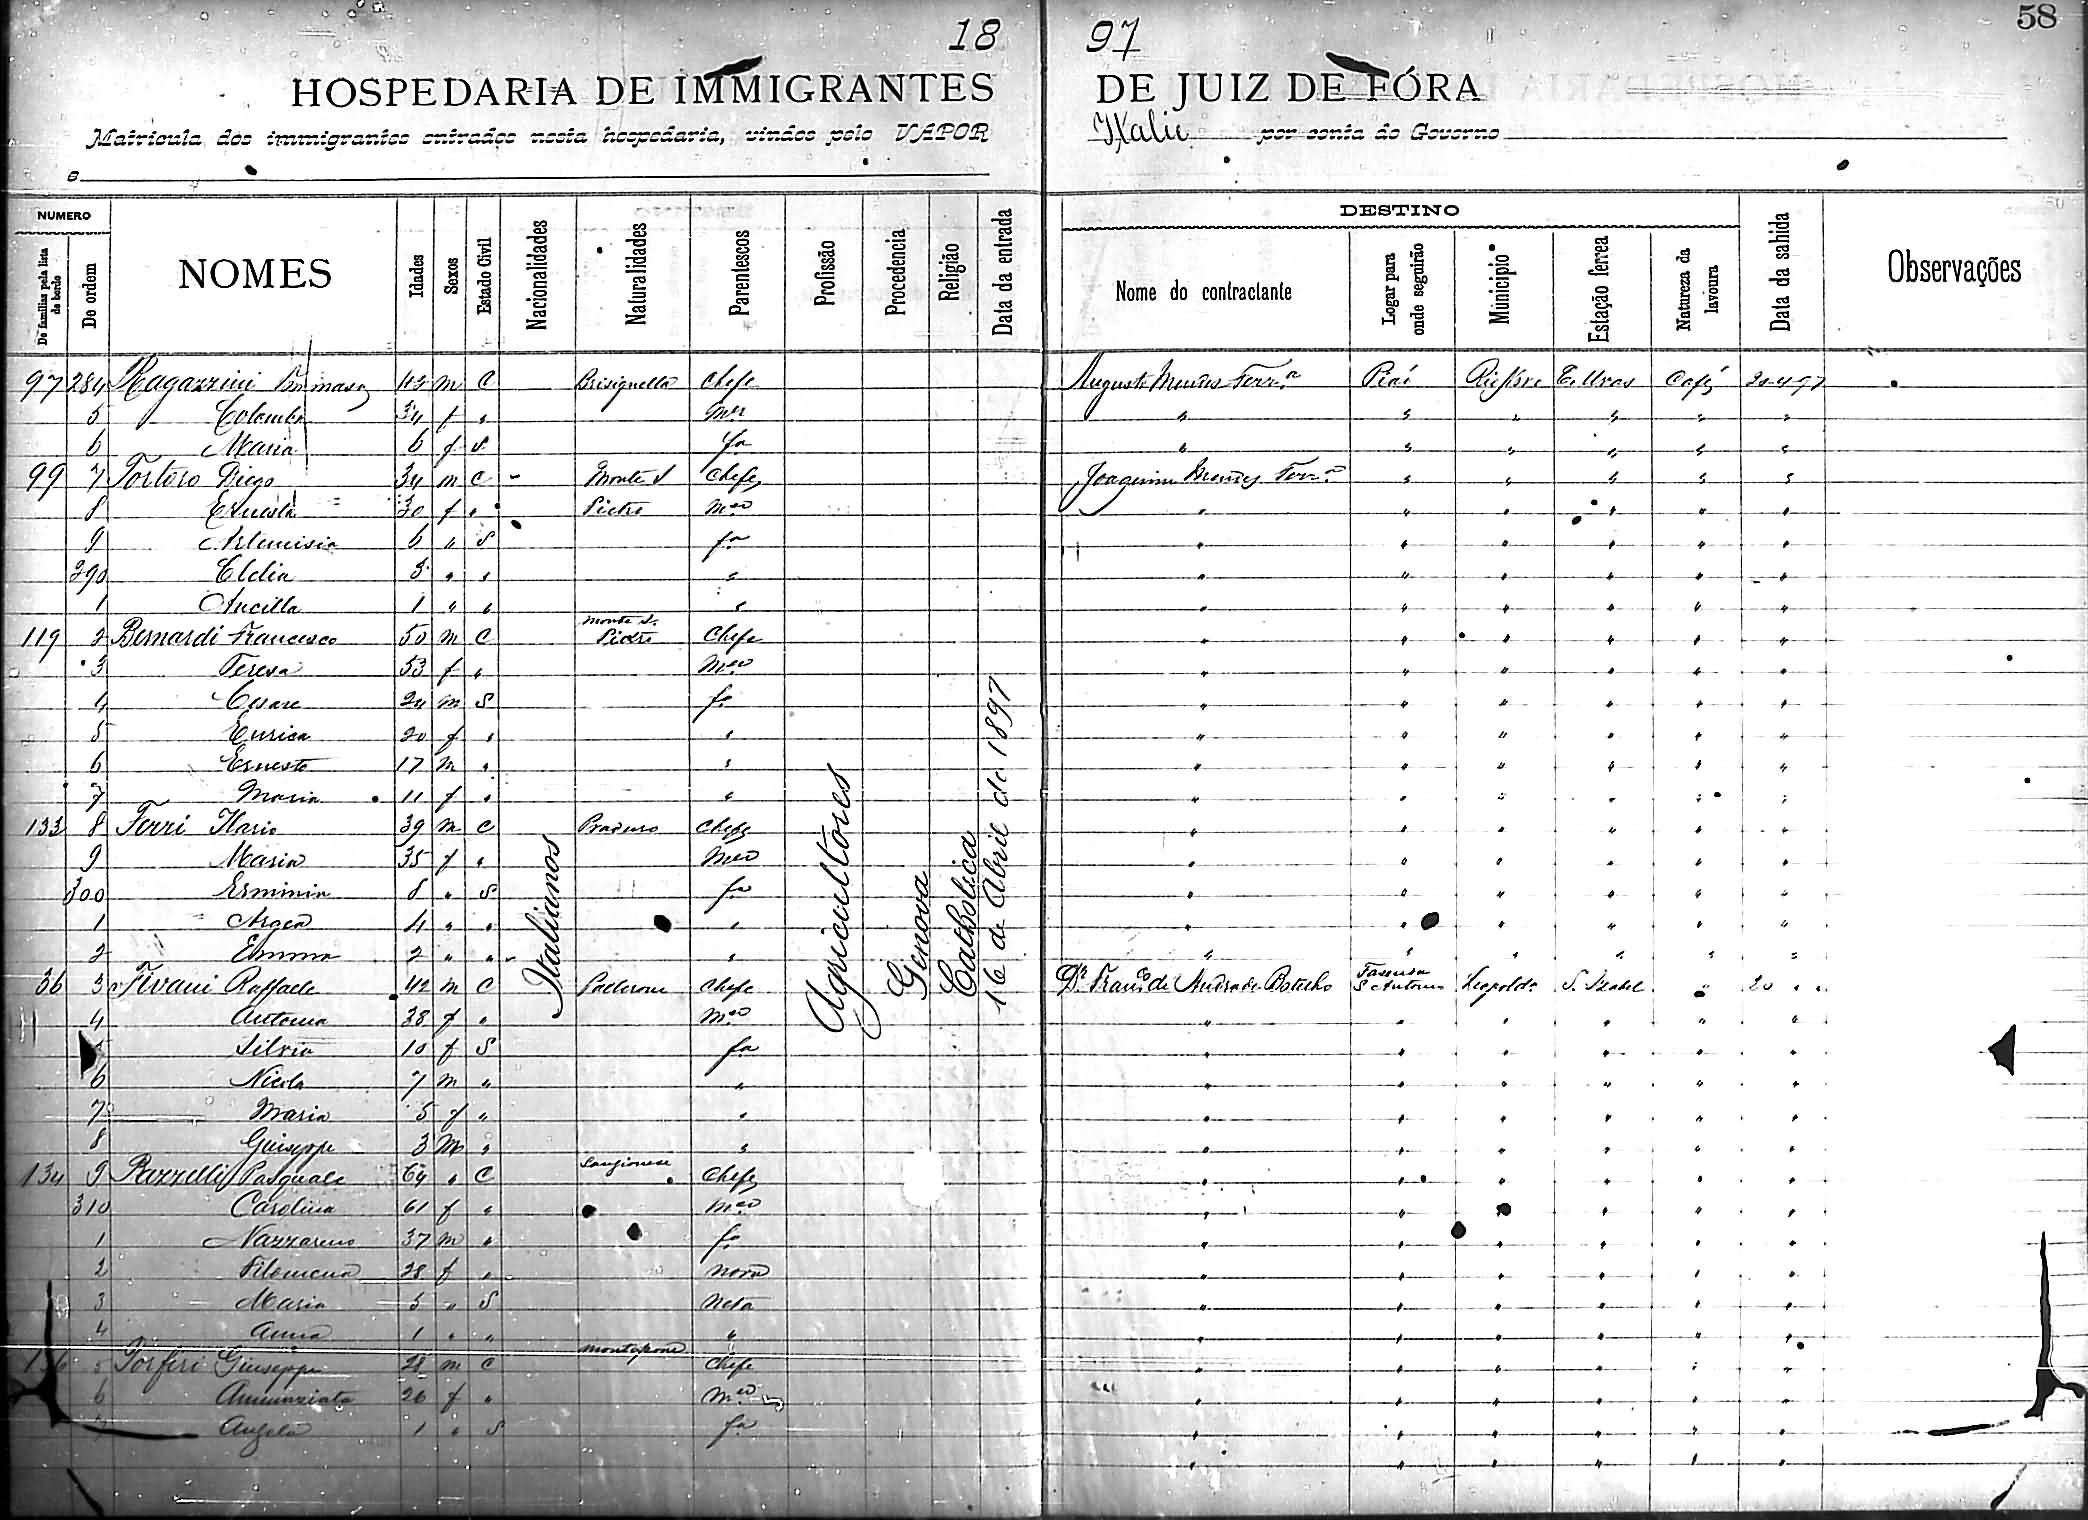 58
18 97
HOSPEDARIA DE IMMIGRANTES DE JUIZ DE FÓRA
Matricula dos immigrantes entrados nesta hospedaria, vindos pelo VAPOR Italie por conta do Governo
e
NUMERO
De familias pela lista de bordo
De ordem
NOMES
Idades
Sexos
Estado Civil
Nacionalidades
Naturalidades
Parentescos
Profissão
Procedencia
Religião
Data da entrada
DESTINO
Nome do contractante
Logar para onde seguirão
Municipio
Estação ferrea
Natureza da lavoura
Data da sahida
Observações
Italianos
Agricultores
Genova
Catholica
16 de Abril de 1897
97 284 Ragazzini Tommaso m C Brisiguella Chefe Augusto Mendes Ferrª Café 20-4-97
5 Colomba 34 f " Mer " " " " " "
6 Maria 6 f S fª " " " " " "
99 7 Tortoro Diego 34 m C Monte S. Chefe Joaquim Mendes Ferrª " " " " "
8 Ernesta 30 f " Pietro Mer " " " " " "
9 Artemisia 6 " S fª " " " " " "
290 Clelia 3 " " " " " " " " "
1 Ancilla 1 " " " " " " " " "
119 2 Bernardi Francesco 50 m C Monte S. Pietro Chefe " " " " " "
3 Teresa 53 f " Mer " " " " " "
4 Cesare 24 m S fº " " " " " "
5 Enrica 20 f " " " " " " " "
6 Ernesto 17 m " " " " " " " "
7 Maria 11 f " " " " " " " "
133 8 Ferri Ilario 39 m C Chefe " " " " " "
9 Maria 35 f " Mer " " " " " "
300 Erminia 8 " S fª " " " " " "
1 Argea 4 " " " " " " " " "
2 Emma 2 " " " " " " " " "
36 3 Raffaele 42 m C Chefe Dr. Franco de Andrade Botelho Fazenda S Antonio Leopoldª S. Izabel " 20 " "
4 Antonia 38 f " Mer " " " " " "
Silvia 10 f S fª " " " " " "
6 Nicola 7 m " " " " " " " "
7 Maria 5 f " " " " " " " "
8 Giuseppe 3 m " " " " " " " "
134 9 Pasquale 64 " C Chefe " " " " " "
310 Carolina 61 f " Mer " " " " " "
1 Nazzareno 37 m " fº " " " " " "
2 Filomena 28 f " nora " " " " " "
3 Maria 3 " S Neta " " " " " "
4 Anna 1 " " " " " " " " "
136 5 Porfiri Giuseppe 28 m C Chefe " " " " " "
6 Annunziata 26 f " Mer " " " " " "
7 Angela 1 " S fª " " " " " "
" " " " " "